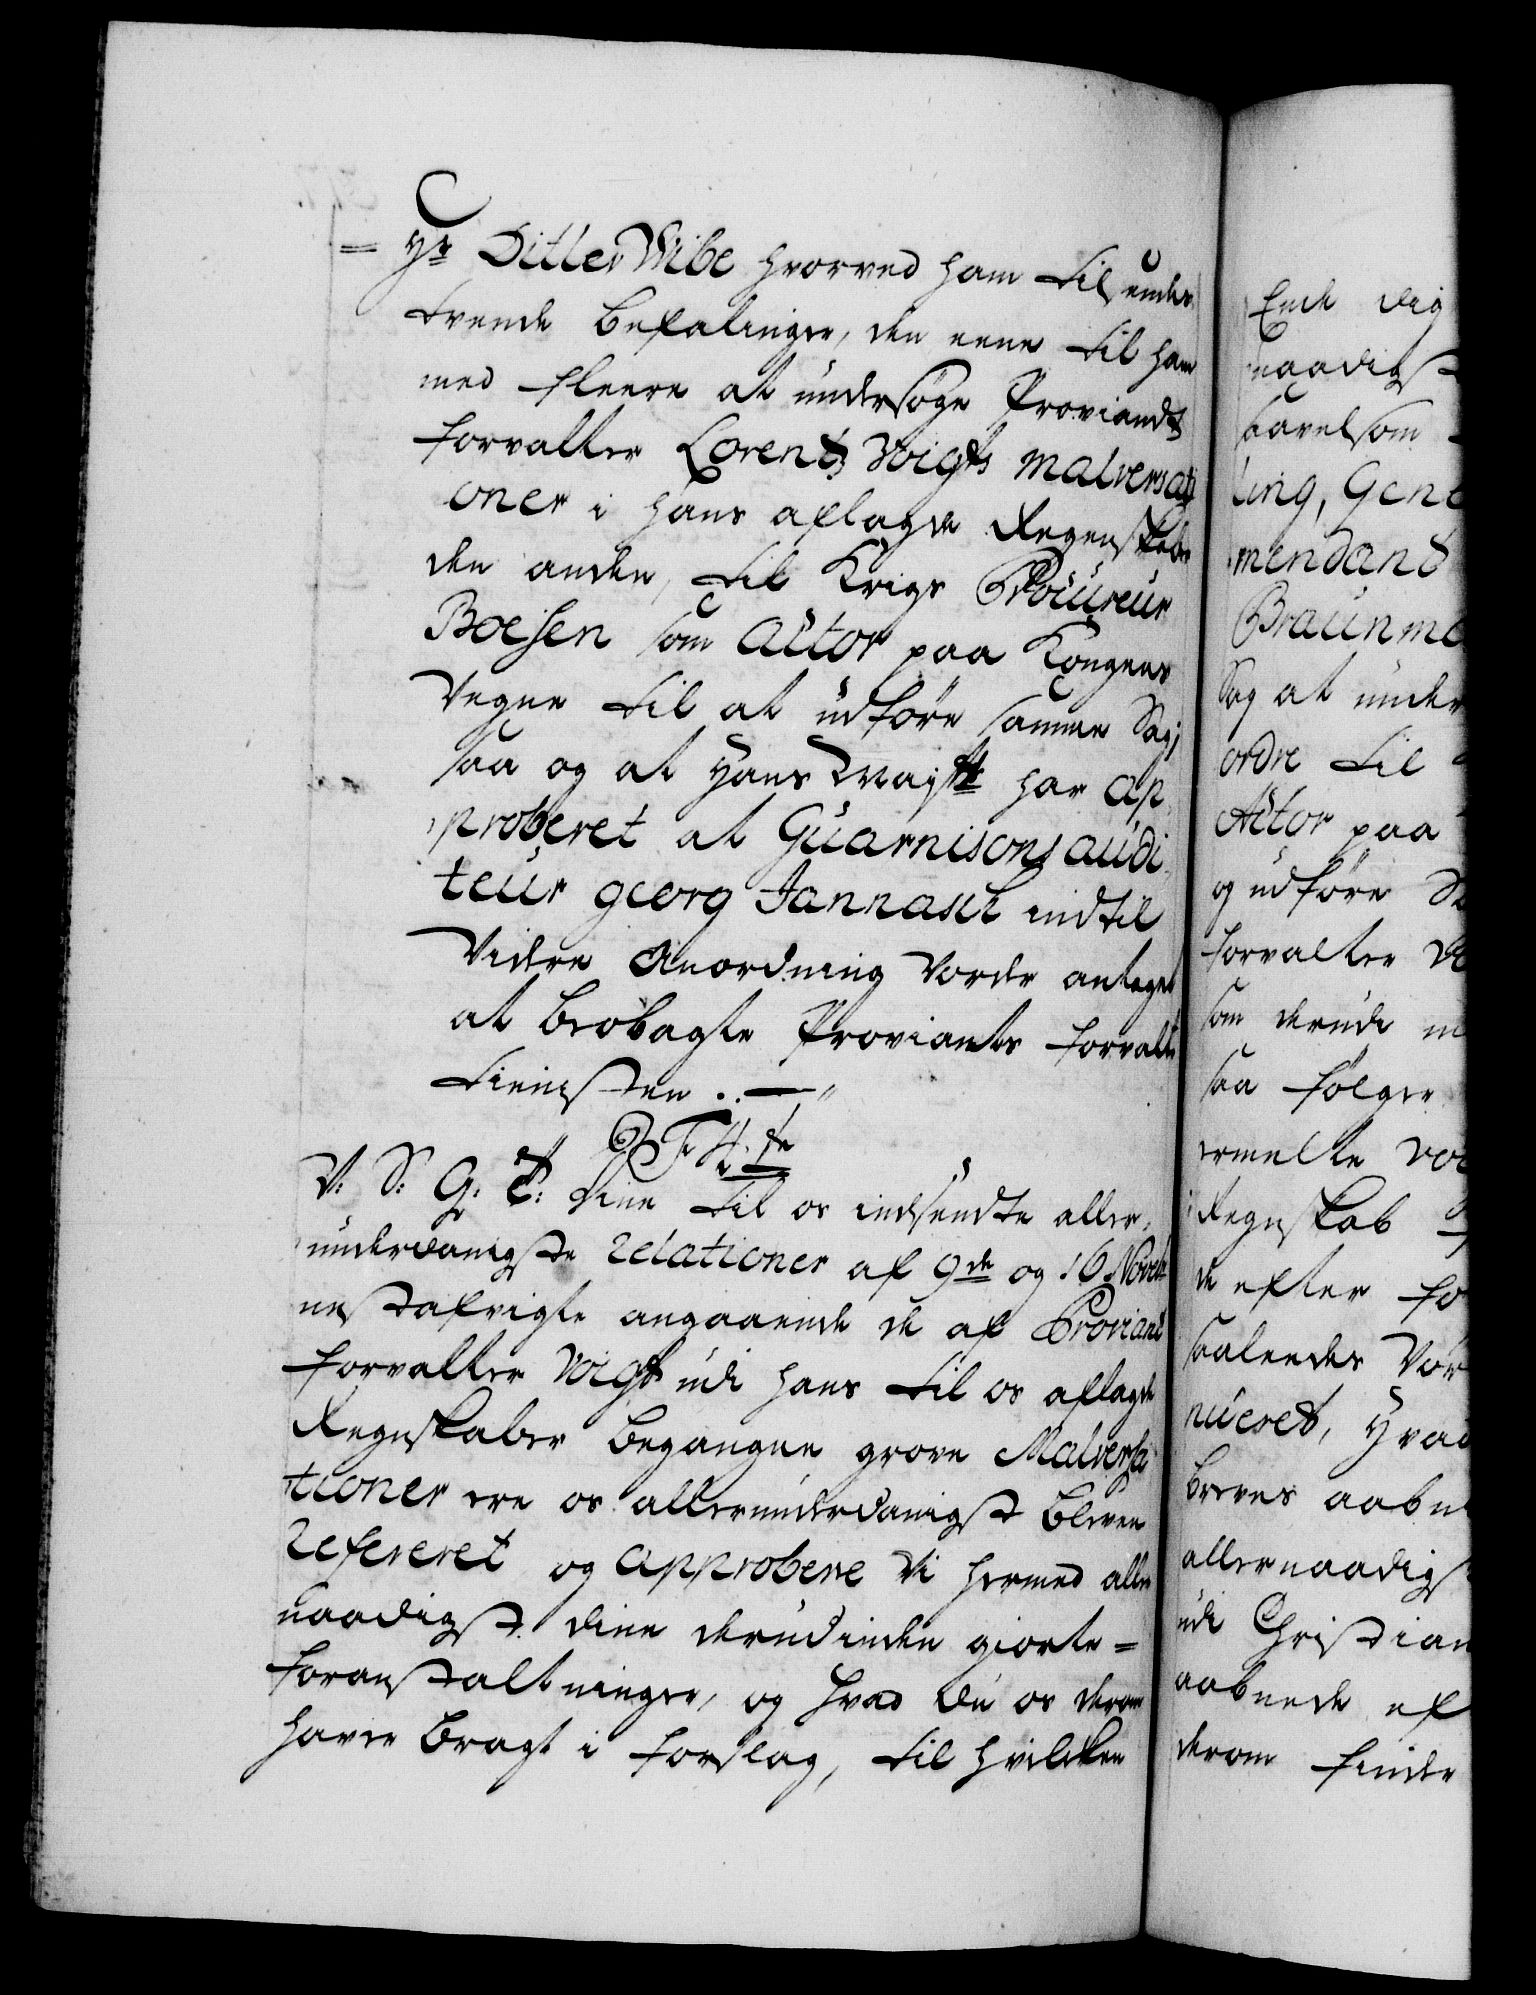 Hr Ditlev Wibe hvorved ham tilsendes
tvende Befalinger, den eene til ham
med fleere at undersøge Proviandt
forvalter Lorentz Voigts malversati
oner i hans aflagde Regenskaber
den anden, til Krigs Procureur
Boesen som Actor paa Kongens
Vegne til at udføre samme Sag,
saa og at Hans Mayst: har ap
proberet at Guarnisons audi
teur georg Jannasch indtil
Videre Anordning vorder antaget
at beobagte Proviants forvalter
tienisten ..—
F 4 de
V: S: G: T: Dine til os indsendte aller,
underdanigste relationer af 9de og 16 Novebr
nestafvigte angaaende de af Proviant
forvalter Voigt udi hans til os aflagde
Regnskaber begangne grove Malversa
tioner ere os allerunderdanigst bleven
refereret og approbere Vi hermed aller
naadigst dine derudinden giorte =
foranstaltninger, og hvad Du os derom
haver bragt i forslag, til hvilcken
Ende Dig
naadigst
saavelsom
ling, Gene
mendant
Braunma
Sag at under
ordre til
Actor paa
og udføre Sa
forvalter Vo
som derude
saa følger
ermelte Voi
Regnskab
de efter fo
saaledes Vor
nueret, Hvad
breves aabne
allernaadigst
udi Christian
aabnede
derom finder